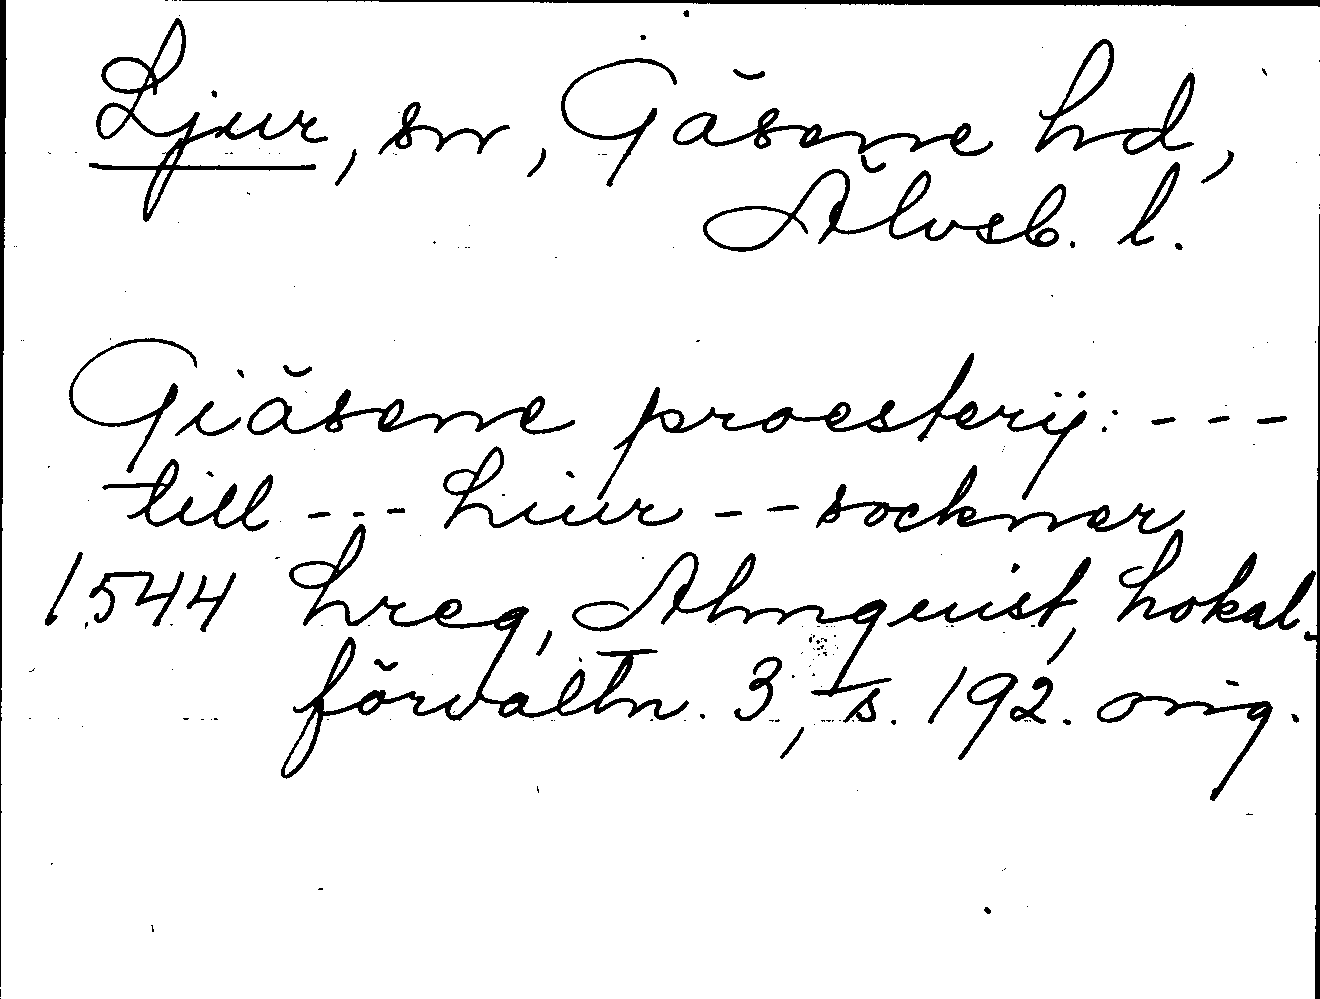 Ljur, sn, Gäsene hd,
Älvsb. l.
Giäsene proesterij: ---
till --- Liur -- socknar
1544 Lreg, Almquist, Lokal-
förvaltn. 3, s. 192. orig.